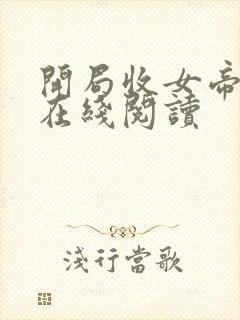 開局收女帝
在綫閱讀
淺行當歌